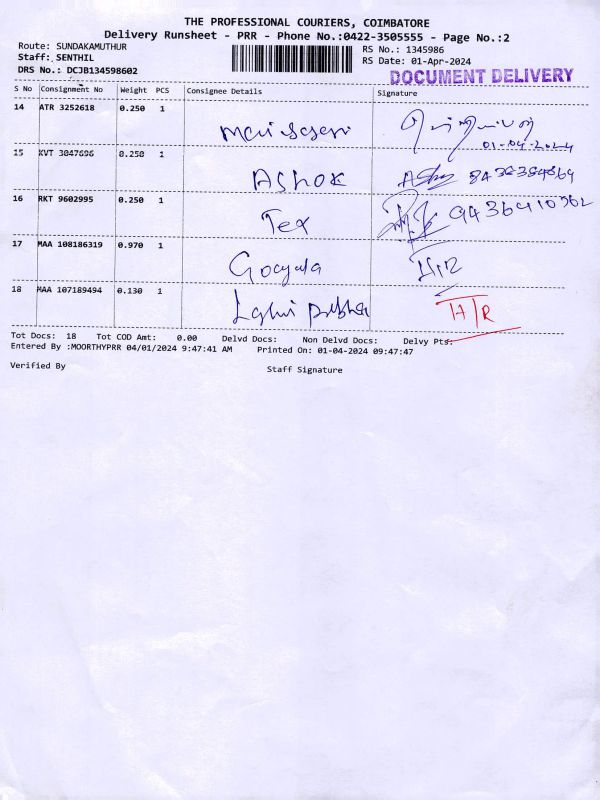 THE PROFESSIONAL COURIERS, COIMBATORE
Delivery Runsheet - PRR - Phone No.:0422-3505555 - Page No.:2
Route: SUNDAKAMUTHUR RS No.: 1345986
Staff: SENTHIL RS Date: 01-Apr-2024
DRS No.: DCJB134598602 DOCUMENT DELIVERY
S No Consignment No Weight PCS Consignee Details Signature
14 ATR 3252618 0.250 1
01-04-2024
15 KVT 3047696 0.250 1 ASHOK
16 RKT 9602995 0.250 1 Tex
17 MAA 108186319 0.970 1
18 MAA 107189494 0.130 1
Tot Docs: 18 Tot COD Amt: 0.00 Delvd Docs: Non Delvd Docs: Delvy Pts:
Entered By :MOORTHYPRR 04/01/2024 9:47:41 AM Printed On: 01-04-2024 09:47:47
Verified By Staff Signature